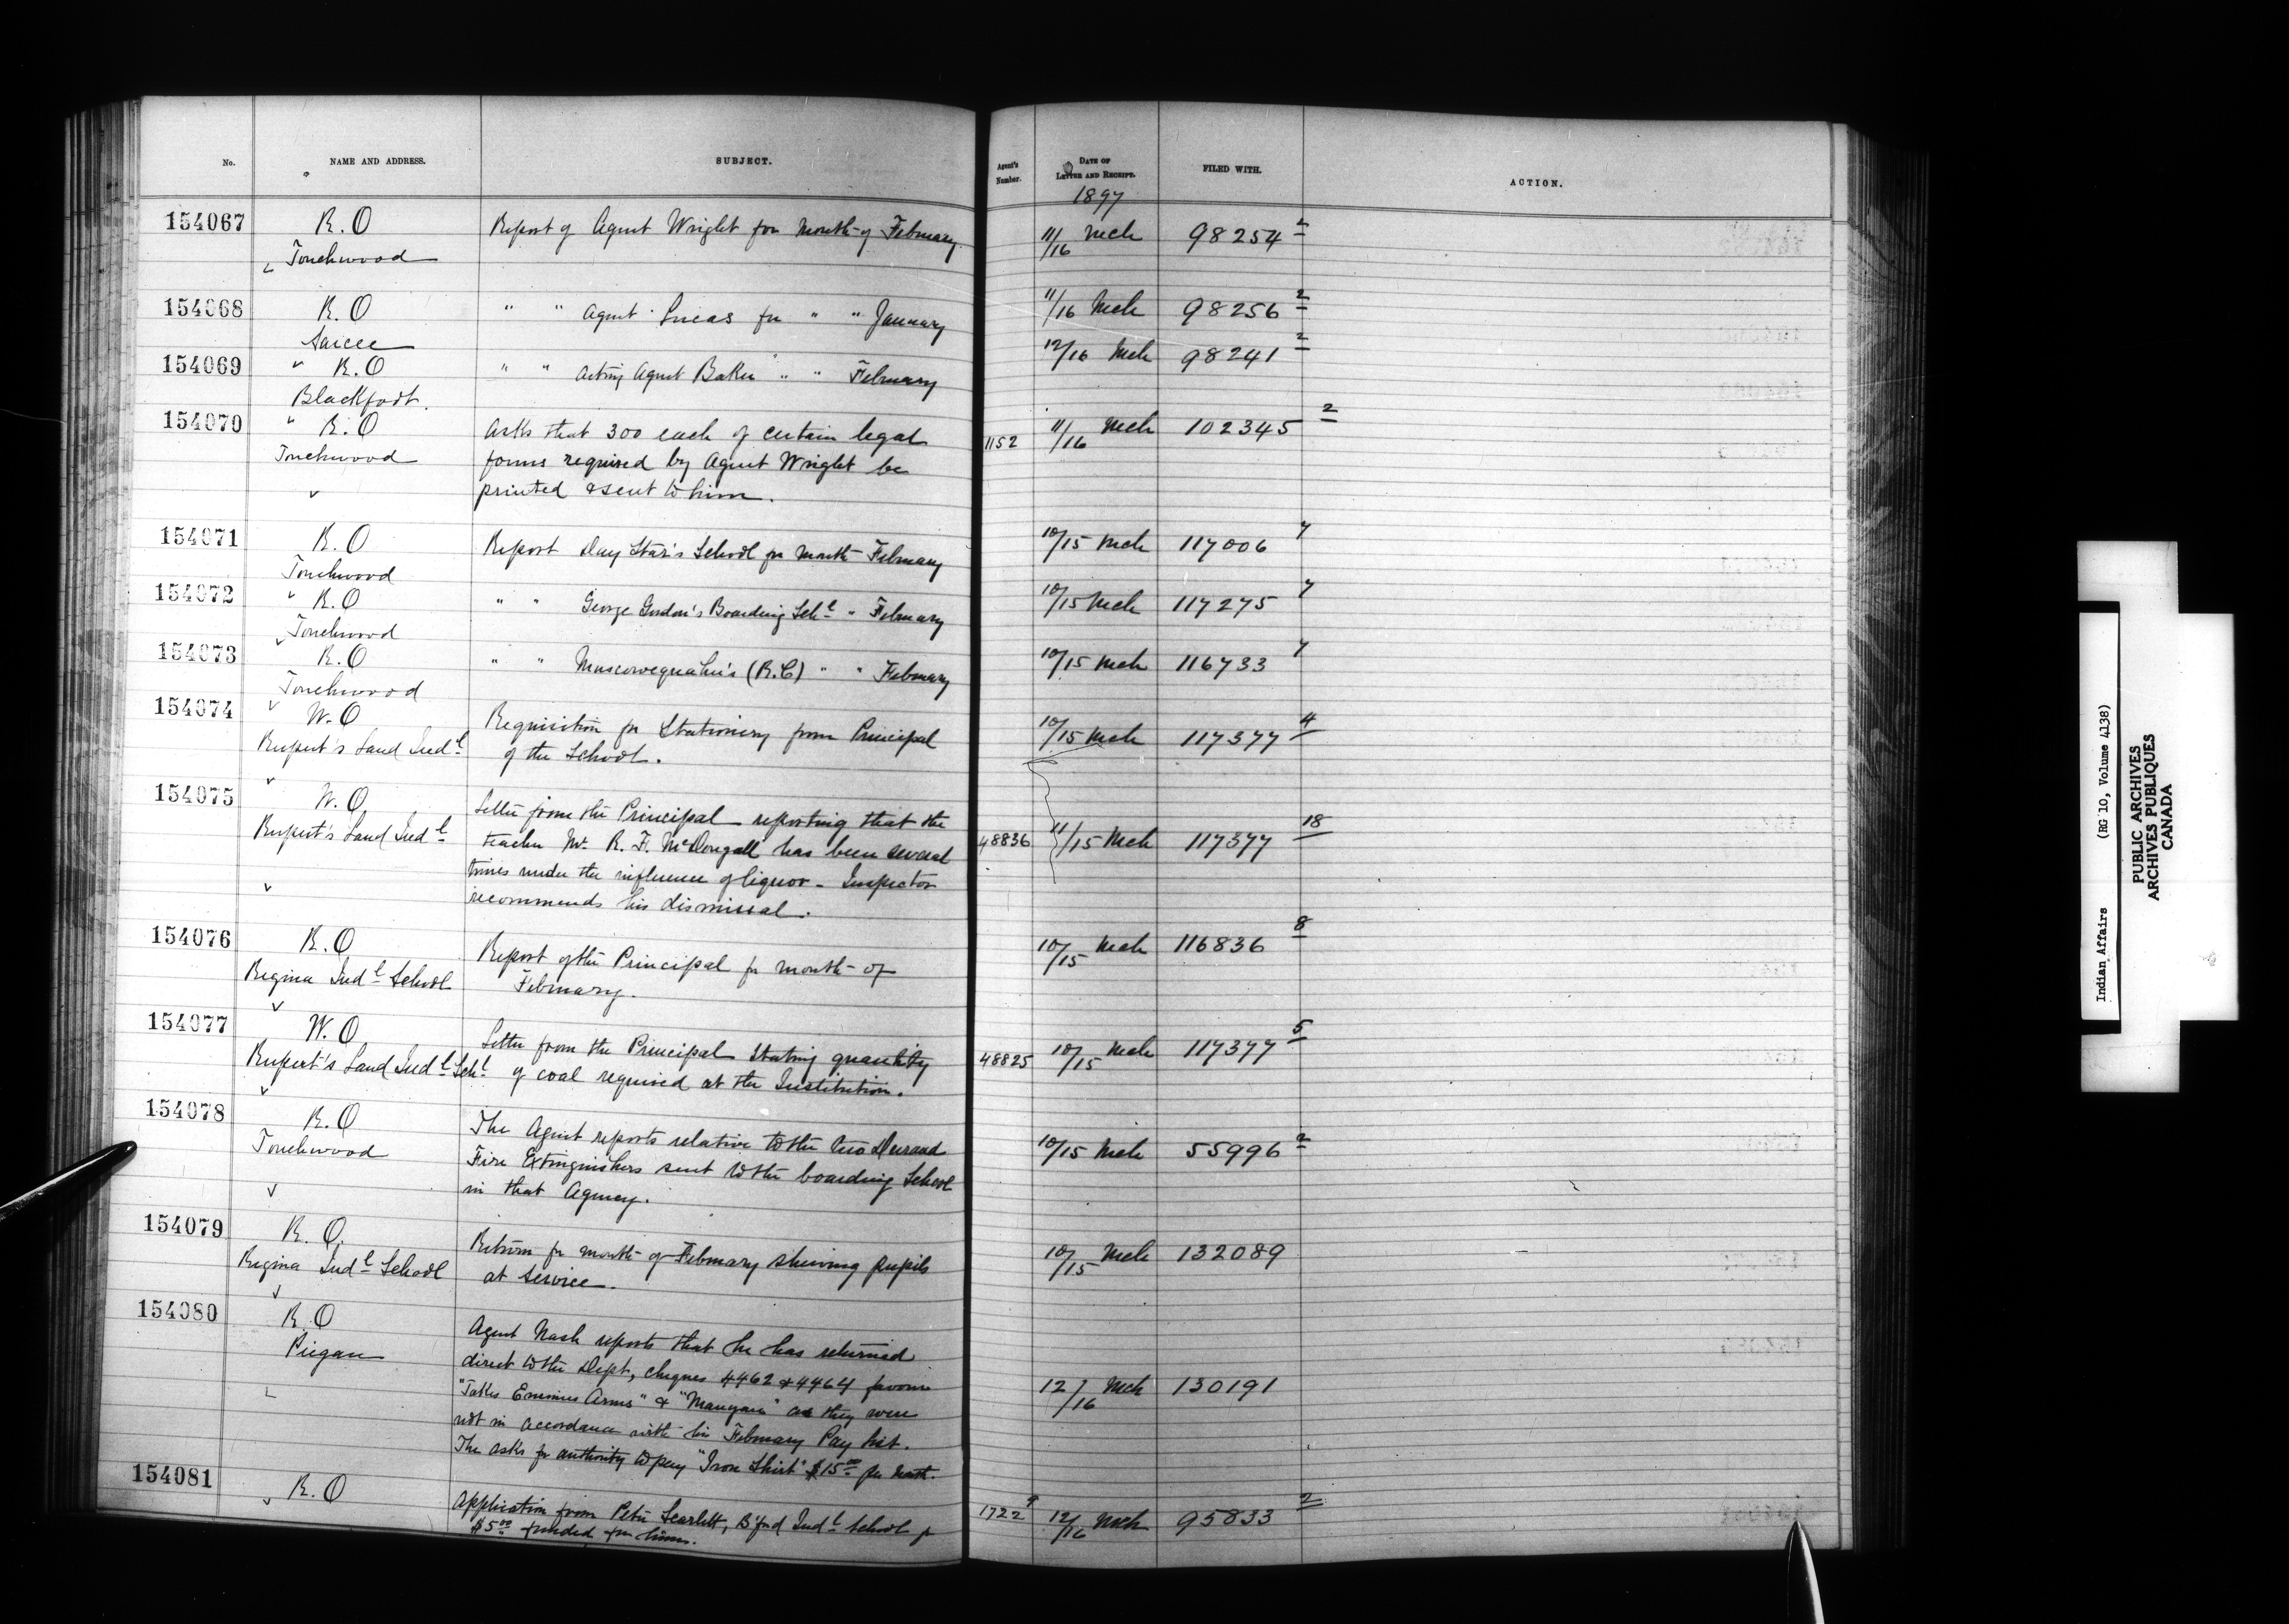 No. NAME AND ADDRESS. SUBJECT. Agent's Number. DATE OF LETTER AND RECEIPT. FILED WITH. ACTION.
1897
154067 R.O Report of Agent Wright for month of February 11/16 Mch 98254 2
Touchwood
154068 R.O " " Agent Lucas for " " January 11/16 Mch 98256 2
Sarcee
154069 R.O " " Acting Agent Baker " " February 12/16 Mch 98241 2
Blackfoot.
154070 R.O Asks that 300 each of certain legal 1152 11/16 Mch 102345 2
Touchwood forms required by Agent Wright be
printed & sent to him.
154071 R.O Report Day Star's School for month February 10/15 Mch 117006 7
Touchwood
154072 R.O " " George Gordon's Boarding Schl " February 10/15 Mch 117275 7
Touchwood
154073 R.O " " Muscowequahn's (R.C) " " February 10/15 Mch 116733 7
Touchwood
154074 W.O Requisition for Stationery from Principal 10/15 Mch 117377 4
Rupert's Land Indl of the School.
154075 W.O Letter from the Principal reporting that the
Rupert's Land Indl teacher Mr. R. F. McDougall has been several 48836 11/15 Mch 117377 18
times under the influence of liquor - Inspector
recommends his dismissal.
154076 R.O Report of the Principal for month of 10/15 Mch 116836 8
Regina Indl School February.
154077 W.O Letter from the Principal stating quantity 48825 10/15 Mch 117377 5
Rupert's Land Indl Schl of coal required at the Institution.
154078 R.O The Agent reports relative to the two Durand 10/15 Mch 55996 2
Touchwood Fire Extinguishers sent to the boarding School
in that Agency.
154079 R.O. Return for month of February shewing pupils 10/15 Mch 132089
Regina Indl School at service.
154080 R.O Agent Nash reports that he has returned
Piegan direct to the Dept, cheques 4462 & 4464 favour 12/16 Mch 130191
"Takes Enemies Arms" & as they were
not in accordance with his February Pay list.
The asks for authority to pay "Iron Shirt" $15.00 per month.
154081 R.O Application from Peter Scarlett, B'ford Indl School for 1722 12/16 Mch 95833 2
$5.00 funded for him.
Indian Affairs (RG 10, Volume 4138)
PUBLIC ARCHIVES
ARCHIVES PUBLIQUES
CANADA